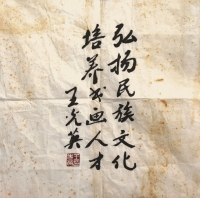 弘扬民族文化
培养书画人才
王光英